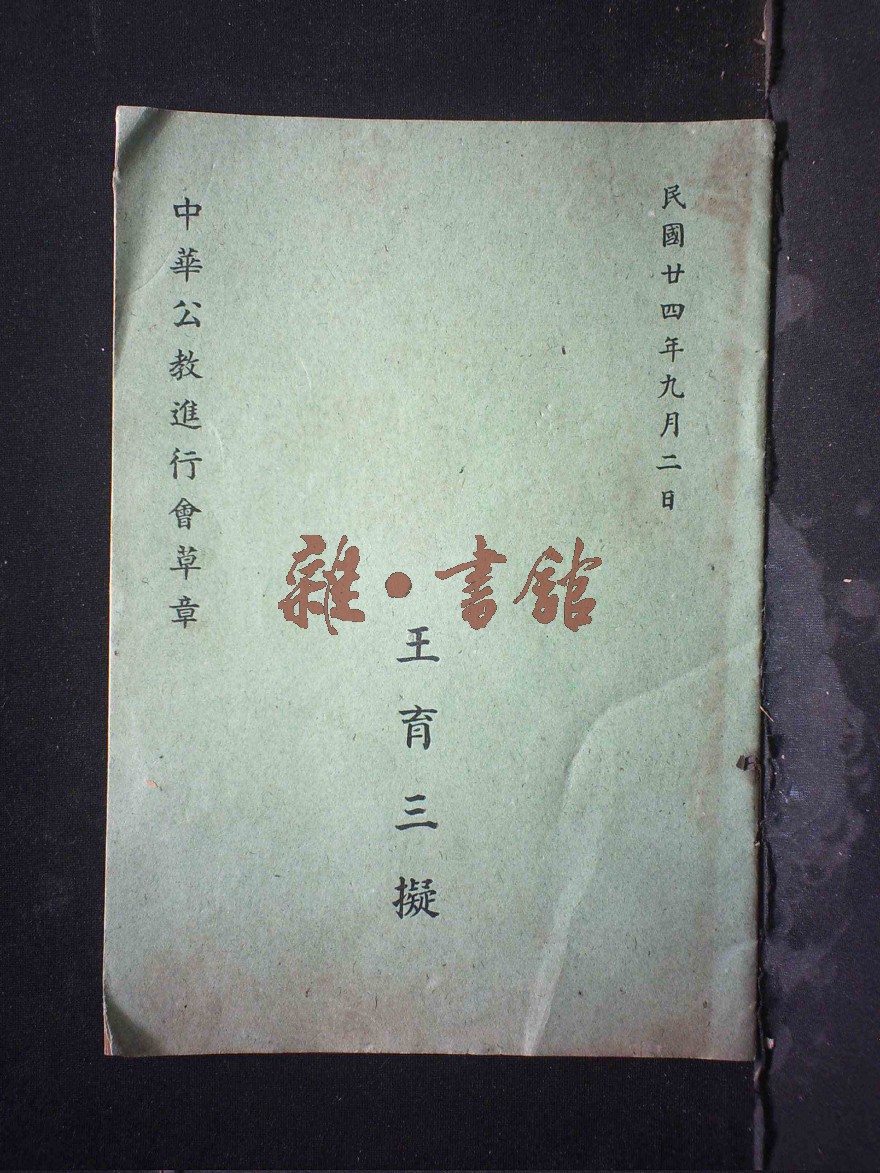 民國廿四年九月二日
雜·書館
王育三擬
中華公教進行會草章